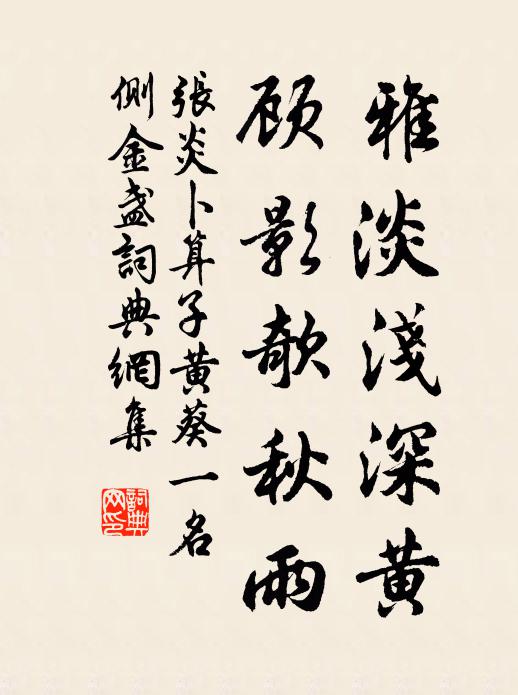 雅淡淺深黄
顾影欹秋雨
張炎卜算子黄葵一名
側金盏詞典網集
詞典
网印